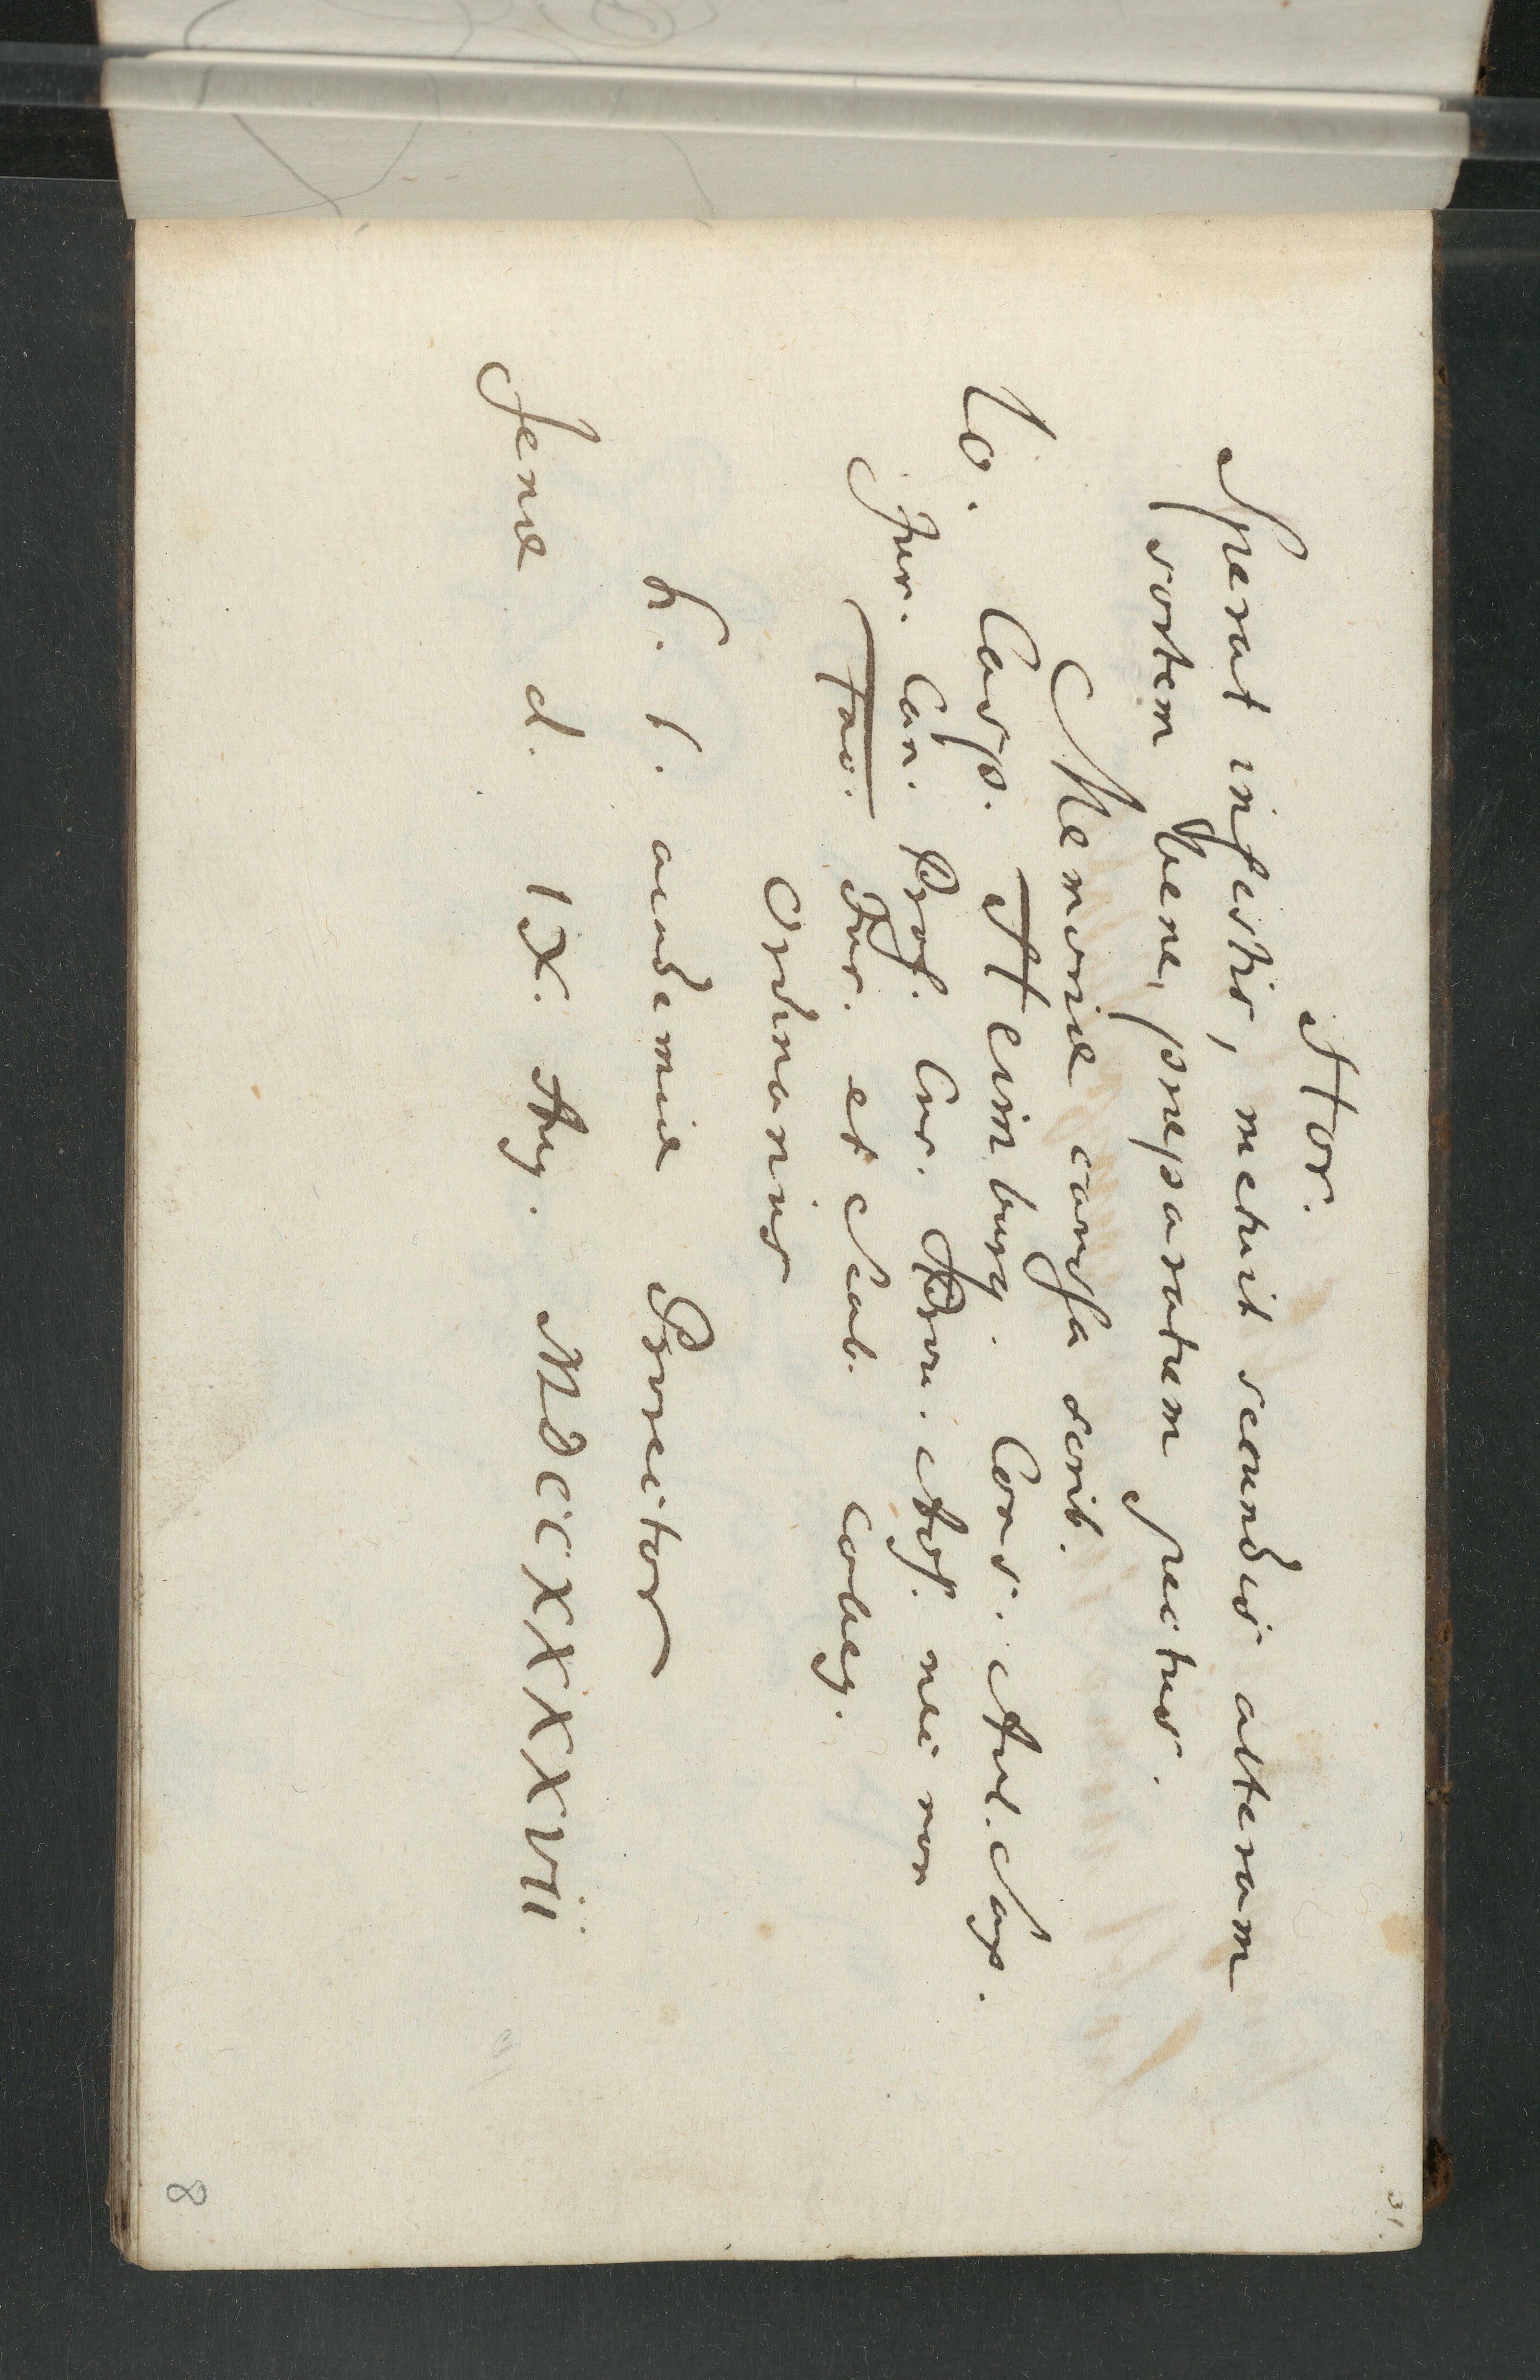 Hor.
Sperat infestis, metuit secundis alteram
sortem bene, præparatum pectus.
Memoriæ caussa scrib.
Io. Casp. Heimburg. Cons. Aul. Sax.
Jur. Can. Prof. Cur. Prov. Ass. nec non
Fac. Jur. et Scab. Colleg.
Ordinarius
h. t. academiæ Prorector
Jenæ d. IX. Aug. MDCCXXXXVII
31.
8